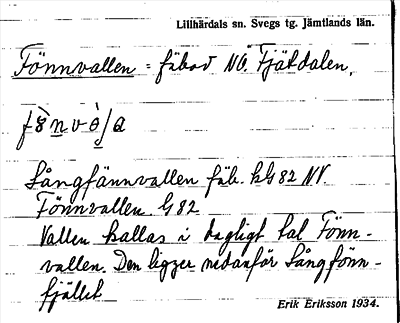 Lillhärdals sn. Svegs tg. Jämtlands län.
Fönnvallen = fäbod NÖ. Fjätdalen.
Långfännvallen fäb. kG 82 NV.
Fönnvallen. G 82
Vallen kallas i dagligt tal Fönn-
vallen. Den ligger nedanför Långfönn-
fjället
Erik Eriksson 1934.